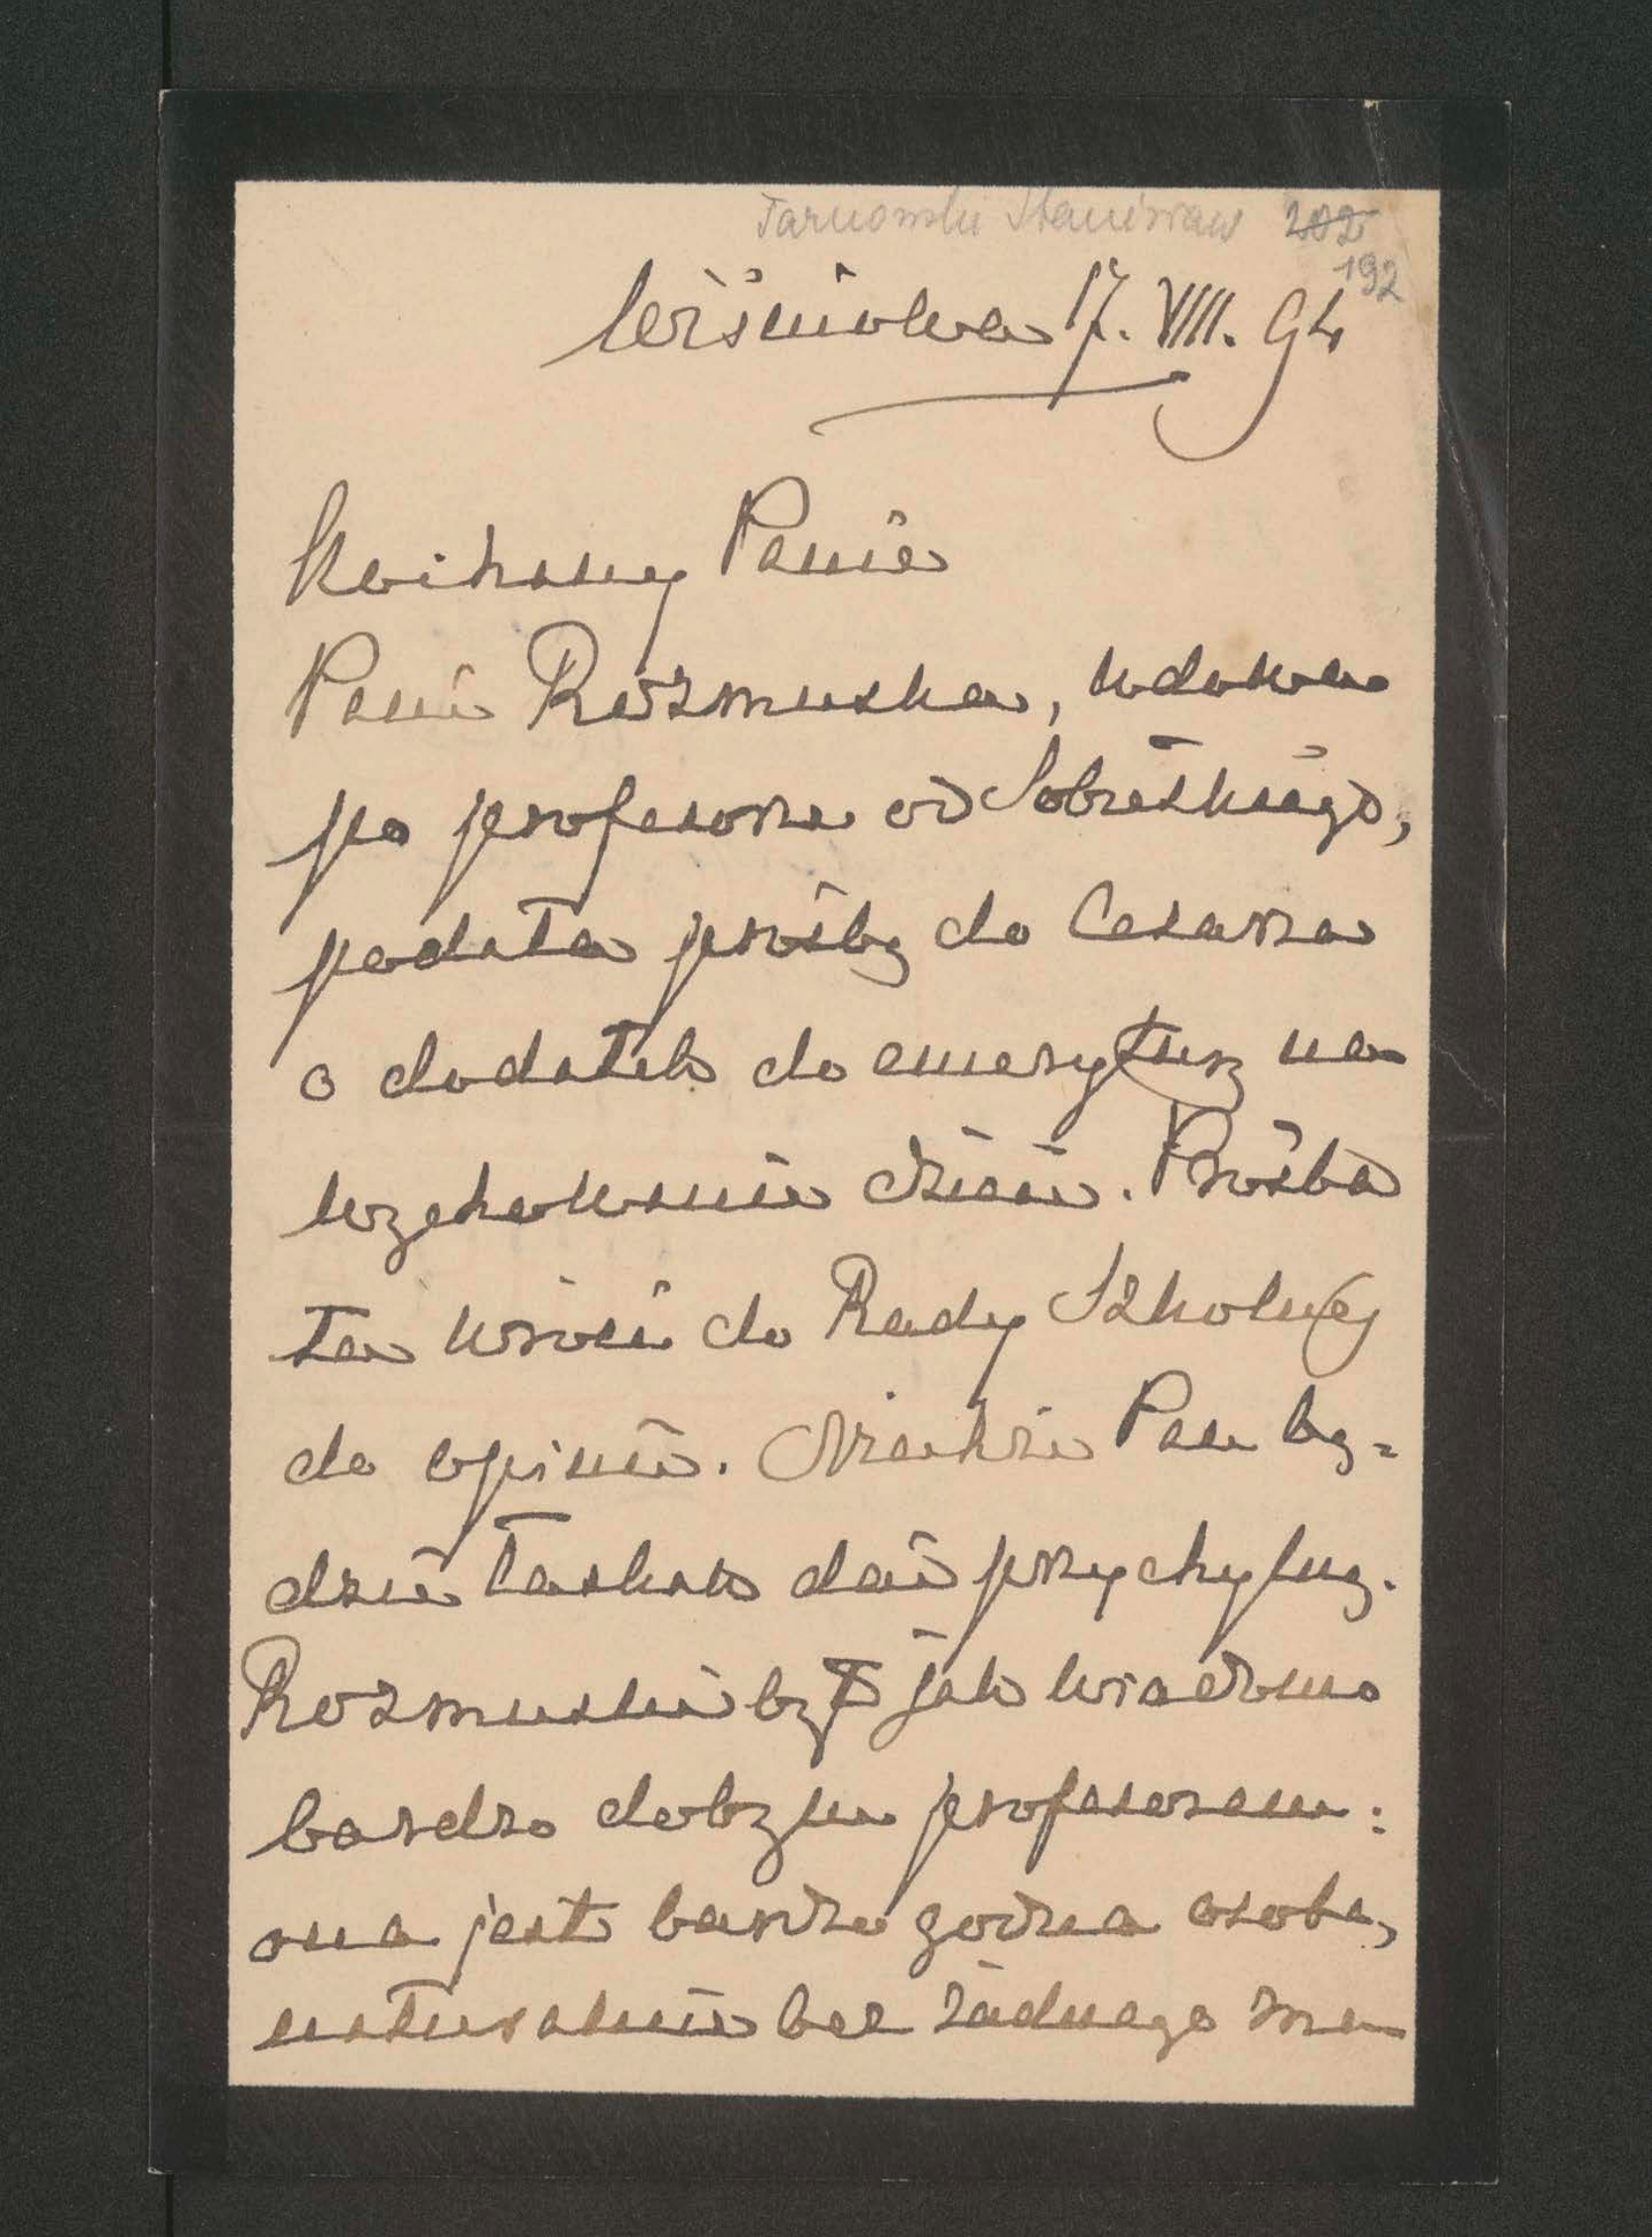 Tarnowski Stanisław 202
192
Wiśniowa 17. VIII. 94
Kochany Panie
Pani Rozmuska, wdowa
po profesorze od Sobieskiego,
podała prośbę do Cesarza
o dodatek do emerytury na
wychowanie dzieci. Prośba
ta wróci do Rady Szkolnej
do opinii. Niechże Pan bę=
dzie łaskaw dać przychylną.
Rozmuski był jak wiadomo
bardzo dobrym profesorem:
ona jest bardzo godna osoba,
naturalnie bez żadnego ma